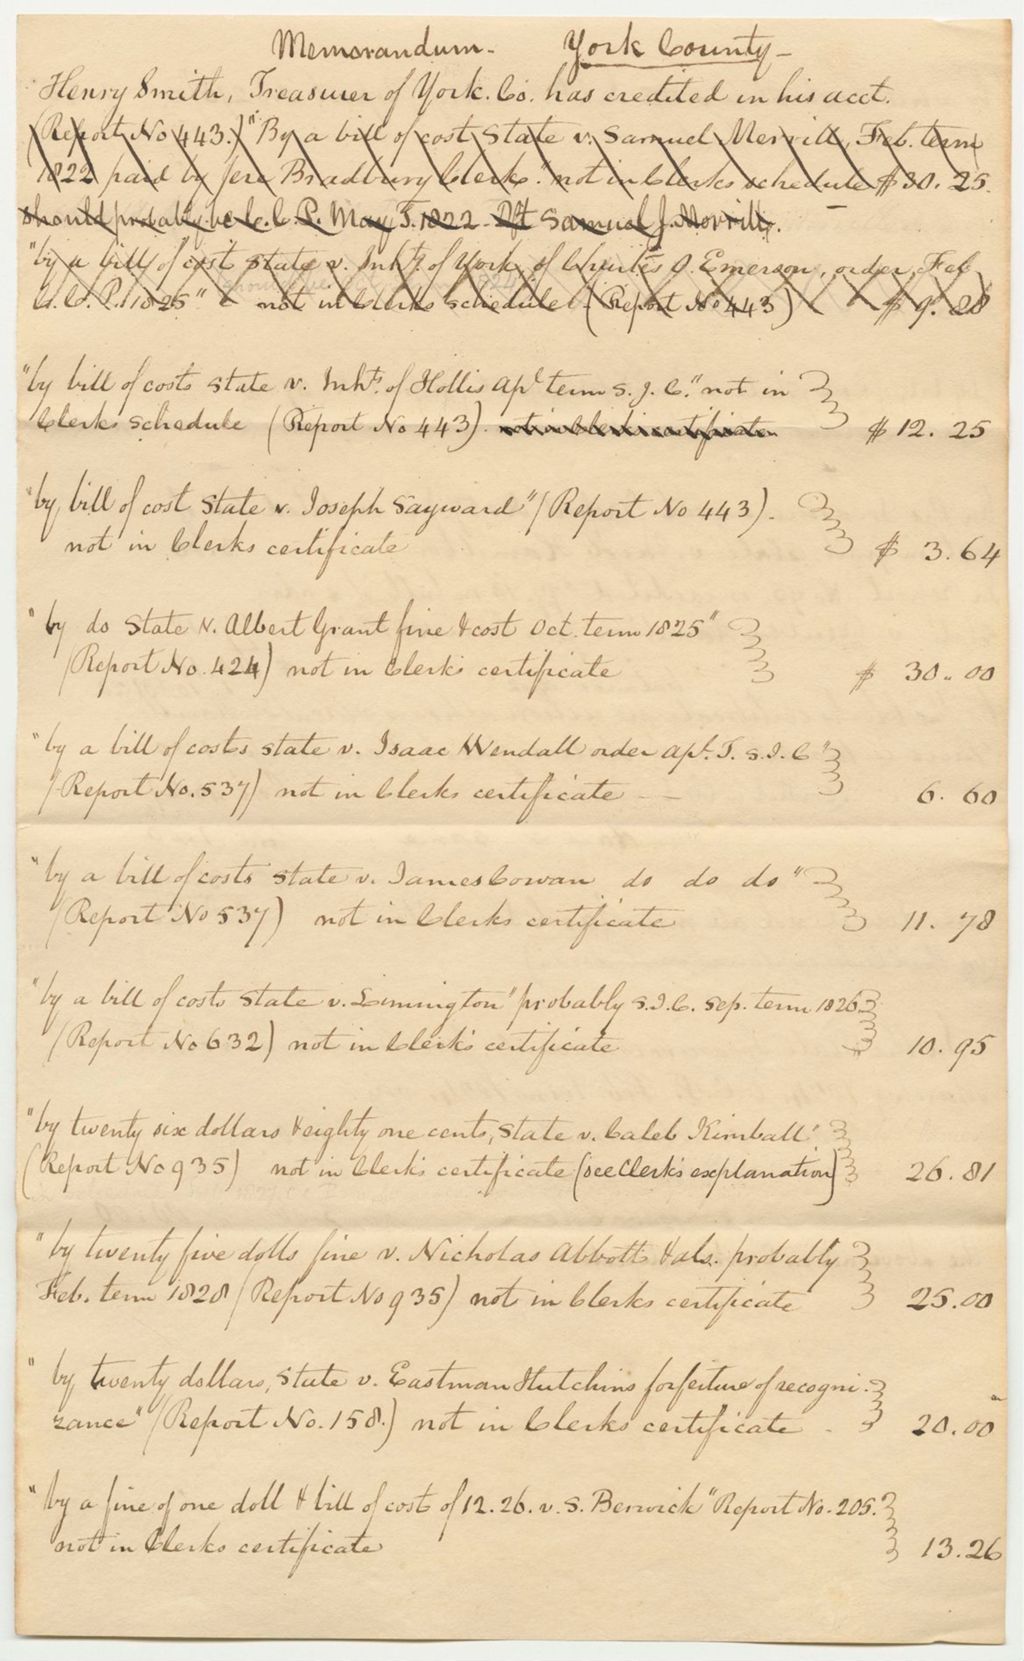 Memorandum - York County -
Henry Smith, Treasurer of York. Co. has credited in his acct.
(Report No 443.) "By a bill of cost State v. Samuel Merrill, Feb. term
1822 paid by Jere Bradbury Clerk." not in Clerks schedule $30. 25.
should probably be C. C. P. May T. 1822 - Samuel J. Morrill.
"by a bill of cost State v. Inhts. of York, of Charles O. Emerson, order, Feb
C. C. P. 1825" not in Clerks schedule - (Report No 443) $ 9. 28
"by bill of costs State v. Inhts. of Hollis Apl. term S. J. C." not in
Clerks schedule (Report No 443). not in Clerks certificate $ 12. 25
"by bill of cost State v. Joseph Sayward" (Report No 443). -
not in Clerks certificate $ 3. 64
"by do State v. Albert Grant fine & cost Oct. term 1825"
(Report No. 424) not in Clerks certificate $ 30.. 00
"by a bill of costs State v. Isaac Wendall order Apl. T. S. J. C"
(Report No. 537) not in Clerks certificate - 6. 60
"by a bill of costs State v. James Cowan do do do"
(Report No 537) not in Clerks certificate 11. 78
"by a bill of costs State v. Limington" probably S. J. C. Sep. term 1826
(Report No 632) not in Clerk's certificate 10. 95
"by twenty six dollars & eighty one cents, State v. Caleb Kimball"
(Report No 935) not in Clerk's certificate (see Clerk's explanation) 26. 81
"by twenty five dolls fine v. Nicholas Abbott & als. probably
Feb. term 1828 (Report No 935) not in Clerks certificate 25. 00
"by twenty dollars, State v. Eastman Hutchins forfeiture of recogni-
zance" (Report No. 158.) not in Clerks certificate - 20. 00
"by a fine of one doll & bill of cost of 12. 26. v. S. Berwick" Report No. 205.
not in Clerks certificate 13. 26